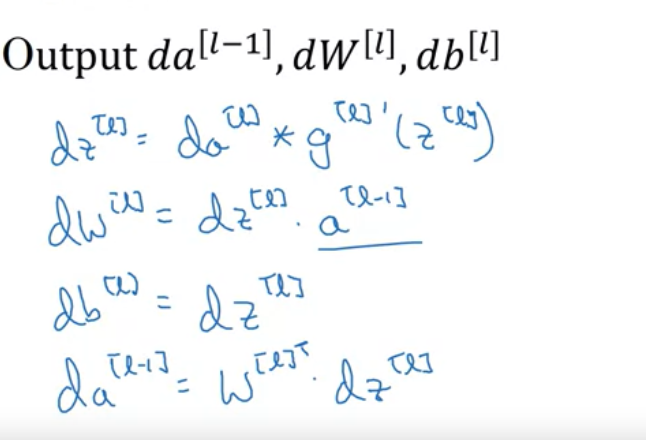 Output da^[l−1], dW^[l], db^[l]
dz^[l] = da^[l] * g^[l]'(z^[l])
dw^[l] = dz^[l] · a^[l-1]
db^[l] = dz^[l]
da^[l-1] = w^[l]ᵀ · dz^[l]